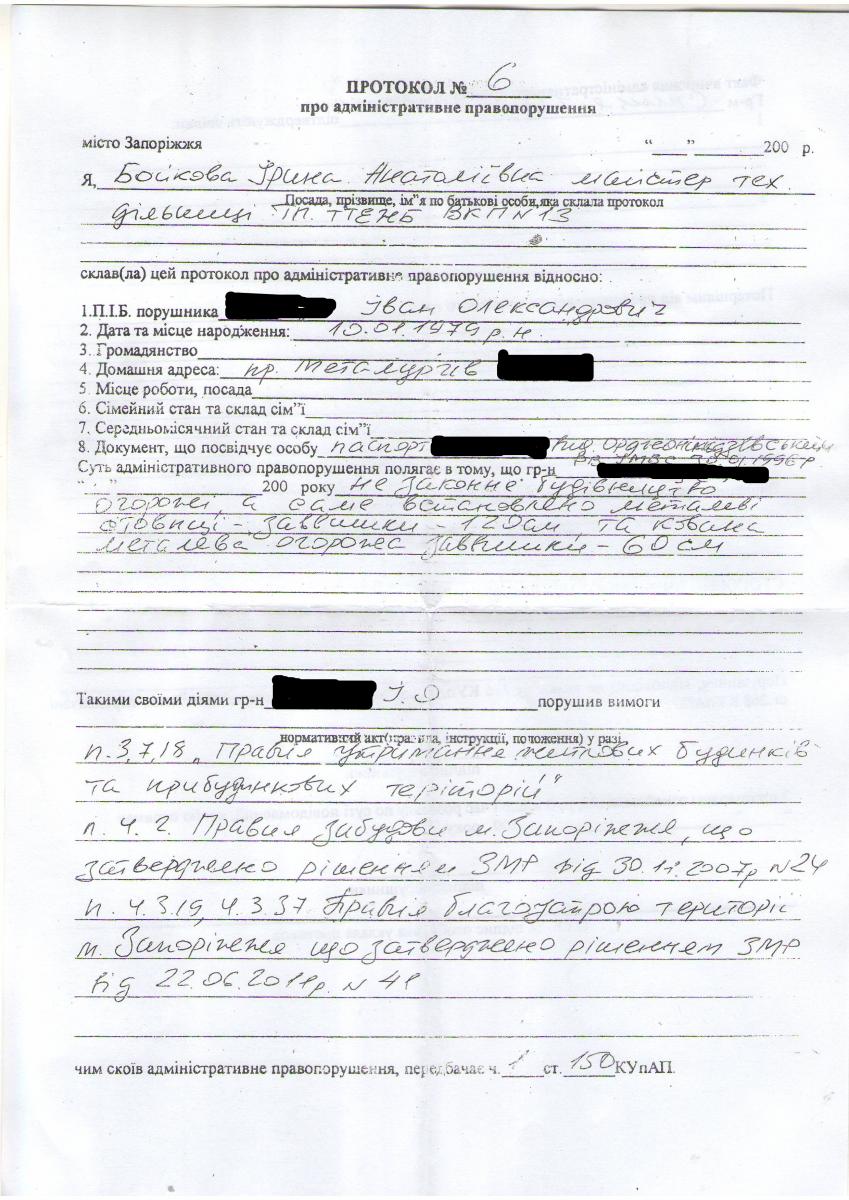 ПРОТОКОЛ № 6
про адміністративне правопорушення
місто Запоріжжя “ ” 200 р.
Я, Бойкова Ірина Анатоліївна майстер тех.
Посада, прізвище, ім"я по батькові особи,яка склала протокол
дільниці ВКП №13
склав(ла) цей протокол про адміністративне правопорушення відносно:
1.П.І.Б. порушника Іван Олександрович
2. Дата та місце народження: 10.01.1979 р.н.
3. Громадянство
4. Домашня адреса: пр. Металургів
5. Місце роботи, посада
6. Сімейний стан та склад сім"ї
7. Середньомісячний стан та склад сім"ї
8. Документ, що посвідчує особу паспорт вид. Орджонікідзівським
Суть адміністративного правопорушення полягає в тому, що гр-н
“ ” 200 року не законне будівництво
огорожі, а саме встановлено металеві
стовпці - заввишки - 120см, та кована
металева огорожа заввишки - 60 см
Такими своїми діями гр-н І.О порушив вимоги
нормативний акт(правила, інструкції, положення) у разі
п.3,7,18 „Правил утримання житлових будинків
та прибудинкових теріторій"
п. 4.2. Правил забудови м. Запоріжжя, що
затверджено рішенням ЗМР від 30.11.2007р №24
п. 4.3.19, 4.3.37 Правил благоустрою територіі
м. Запоріжжя що затверджено рішенням ЗМР
від 22.06.2011р. №41
чим скоїв адміністративне правопорушення, передбачає ч. 1 ст. 150 КУпАП.